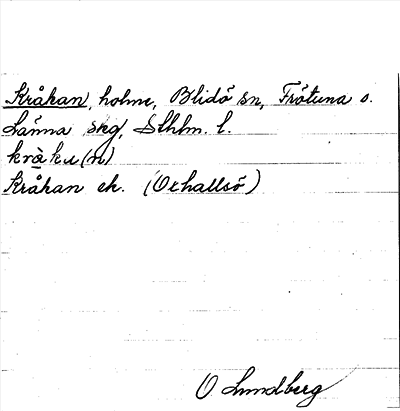 Kråkan, holme, Blidö sn, Frötuna o.
Länna skg, Sthlm. l.
krà̱ku(n)
Kråkan ek. (Oxhallsö)
O Lundberg